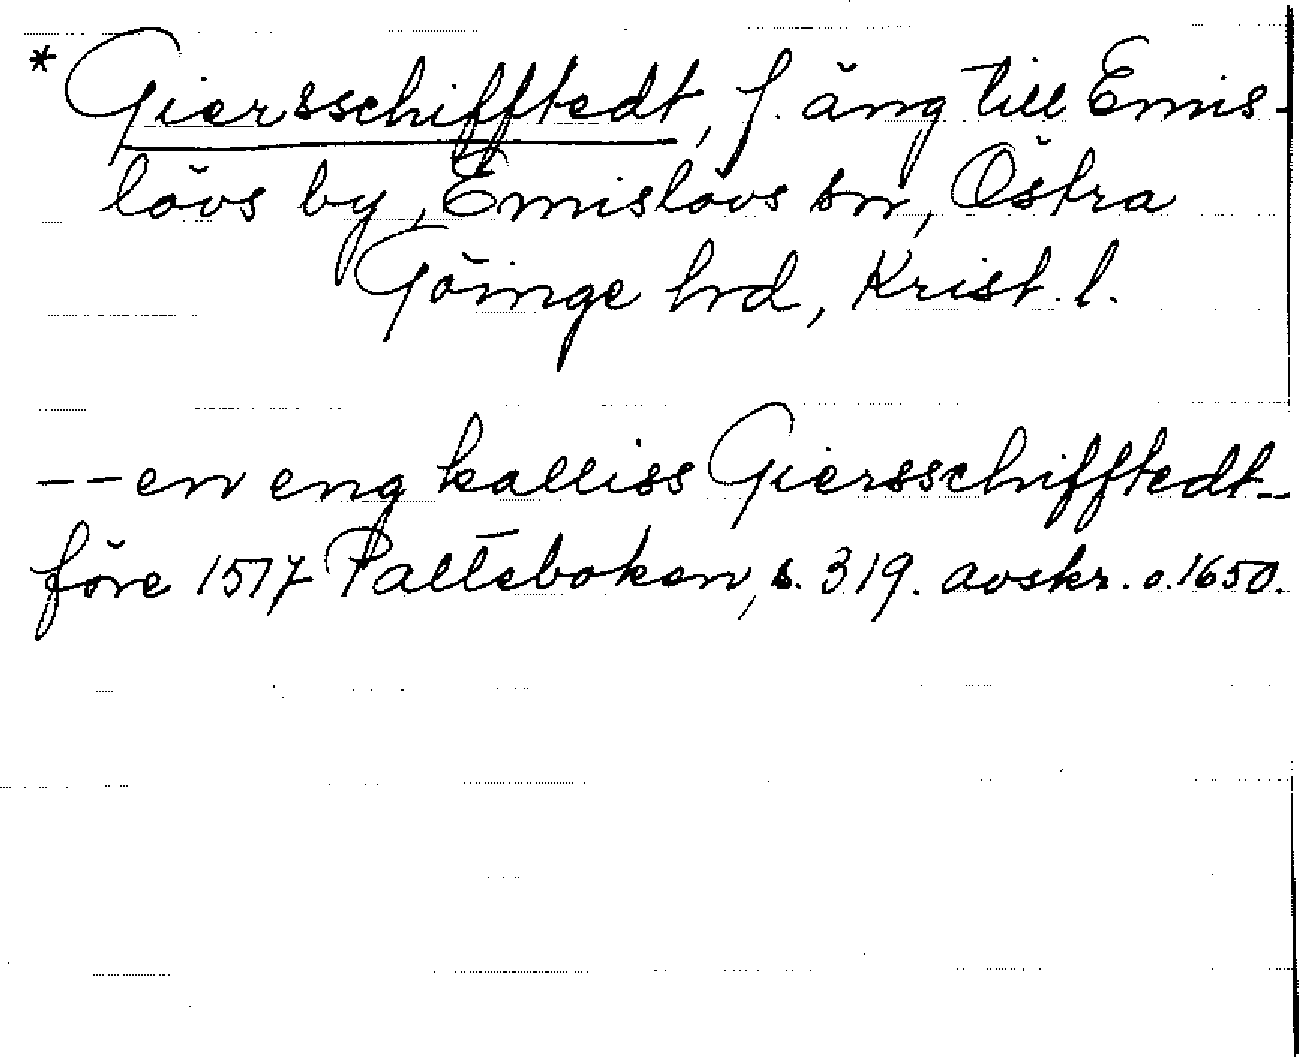 * Giersschifftedt, f. äng till Emis-
lövs by, Emislövs sn, Östra
Göinge hrd, Krist. l.
-- en eng kalliss Giersschifftedt --
före 1517 Palteboken, s. 319. avskr. c. 1650.